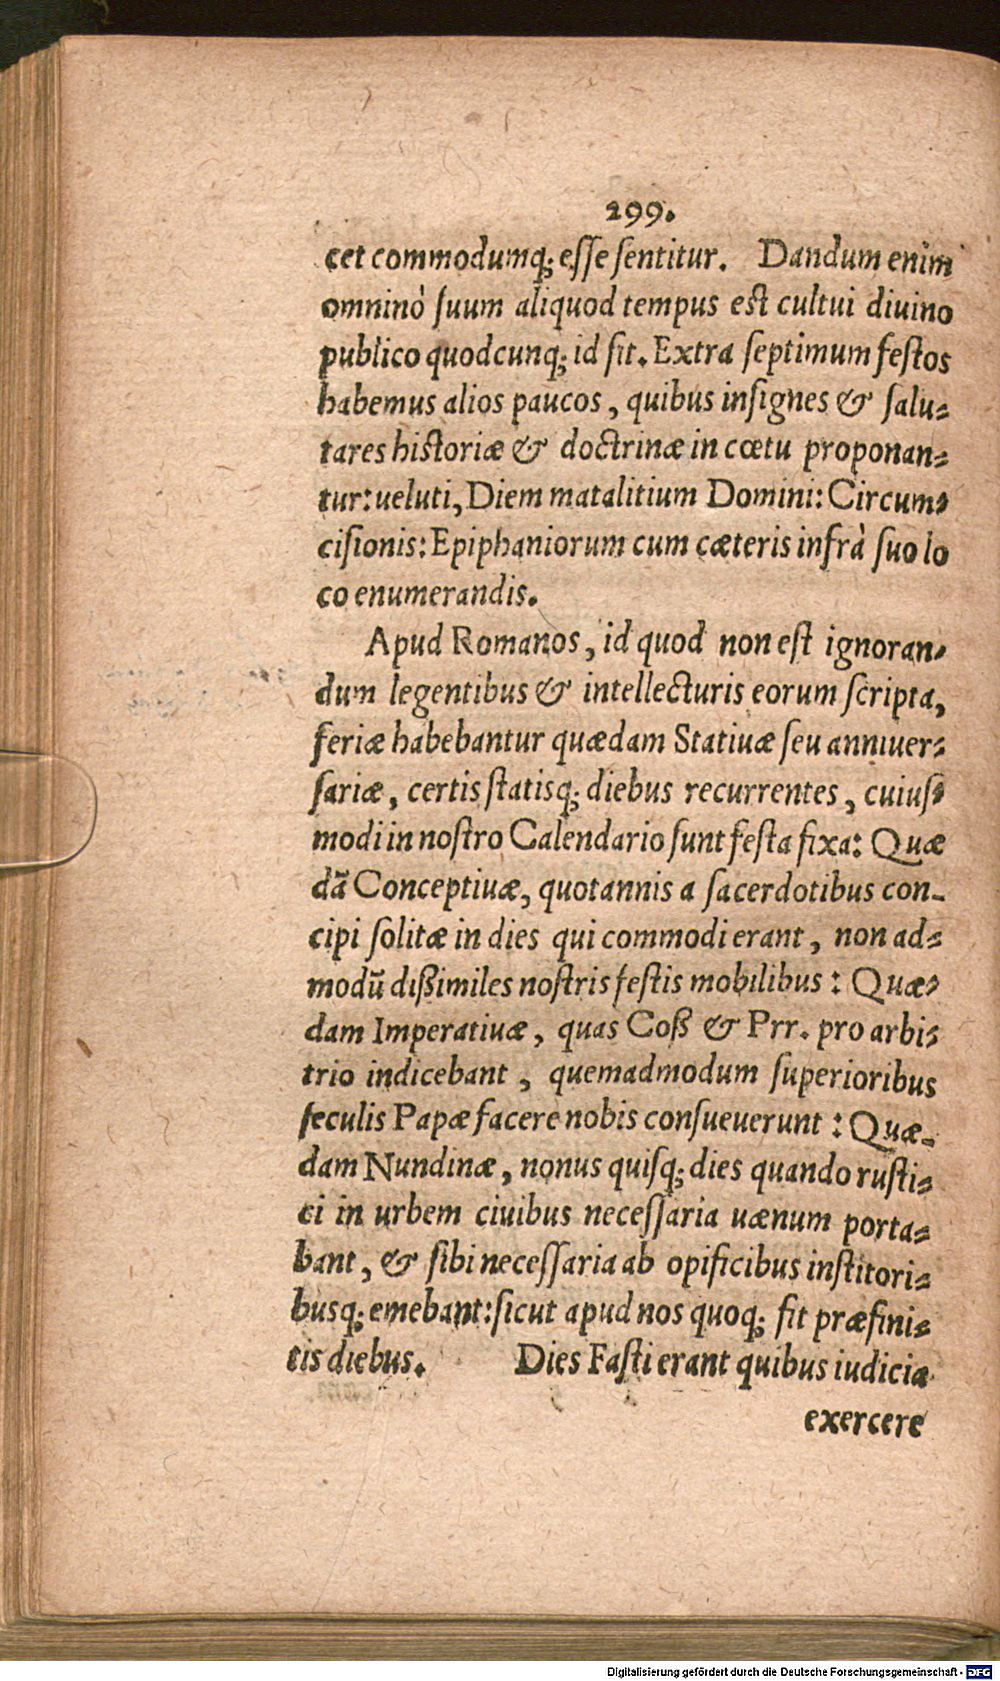 299.
cet commodumq́; eſſe ſentitur. Dandum enim
omninò ſuum aliquod tempus est cultui diuino
publico quodcunq́; id ſit. Extra ſeptimum feſtos
habemus alios paucos, quibus inſignes & ſalu-
tares hiſtoriæ & doctrinæ in cœtu proponan-
tur: ueluti, Diem matalitium Domini: Circum-
ciſionis: Epiphaniorum cum cæteris infrà ſuo lo
co enumerandis.
Apud Romanos, id quod non eſt ignoran-
dum legentibus & intellecturis eorum ſcripta,
feriæ habebantur quædam Statiuæ ſeu anniuer-
ſariæ, certis ſtatisq́; diebus recurrentes, cuiuſ-
modi in noſtro Calendario ſunt feſta fixa: Quæ
dā Conceptiuæ, quotannis a ſacerdotibus con-
cipi ſolitæ in dies qui commodi erant, non ad-
modū dißimiles noſtris feſtis mobilibus: Quæ-
dam Imperatiuæ, quas Coß & Prr. pro arbi-
trio indicebant, quemadmodum ſuperioribus
ſeculis Papæ facere nobis conſueuerunt: Quæ-
dam Nundinæ, nonus quiſq́; dies quando ruſti-
ci in urbem ciuibus neceſſaria uænum porta-
bant, & ſibi neceſſaria ab opificibus inſtitori-
busq́; emebant: ſicut apud nos quoq́; fit præfini-
tis diebus. Dies Faſti erant quibus iudicia
exercere
Digitalisierung gefördert durch die Deutsche Forschungsgemeinschaft - DFG